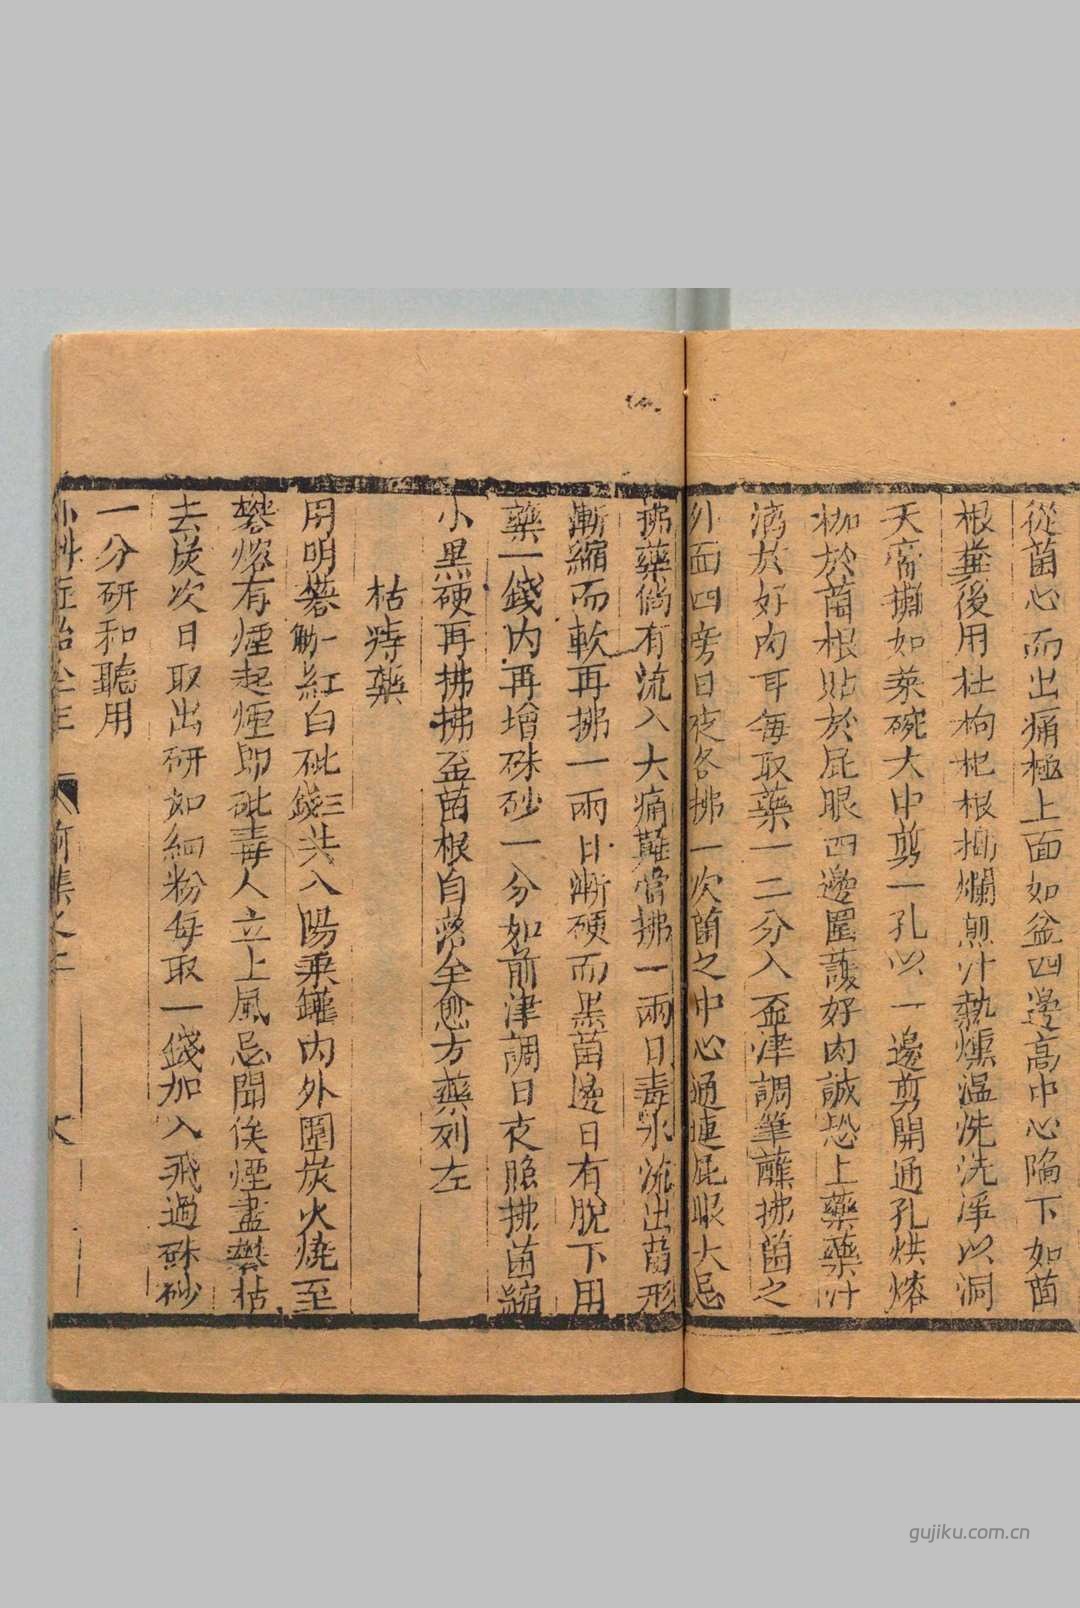 從菌心而出痛極上面如盆四邊高中心陥下如菌
根糞後用杜枸杞根搗爛煎汁熱燻温洗洗淨以洞
天膏攤如菜碗大中剪一孔以一邊剪開通孔烘熔
枷於菌根貼於屁眼四邊圍護好肉誠恐上藥藥汁
滴於好肉耳每取藥一二分入盃津調筆蘸拂菌之
外面四旁日夜各拂一次菌之中心通連屁眼大忌
拂藥倘有流入大痛難當拂一兩日毒水流出菌形
漸縮而軟再拂一兩日漸硬而黑菌邊日有脫下用
藥一錢內再增硃砂一分如前津調日夜照拂菌縮
小黑硬再拂拂至菌根自落全愈方藥列左
枯痔藥
用明礬一觔紅白砒三錢共入陽乘罐內外圍炭火燒至
礬熔有煙起煙即砒毒人立上風忌聞俟煙盡礬枯
去炭次日取出研如細粉每取一錢加入飛過硃砂
一分研和聽用
外科症治全生 前集之
gujiku.com.cn